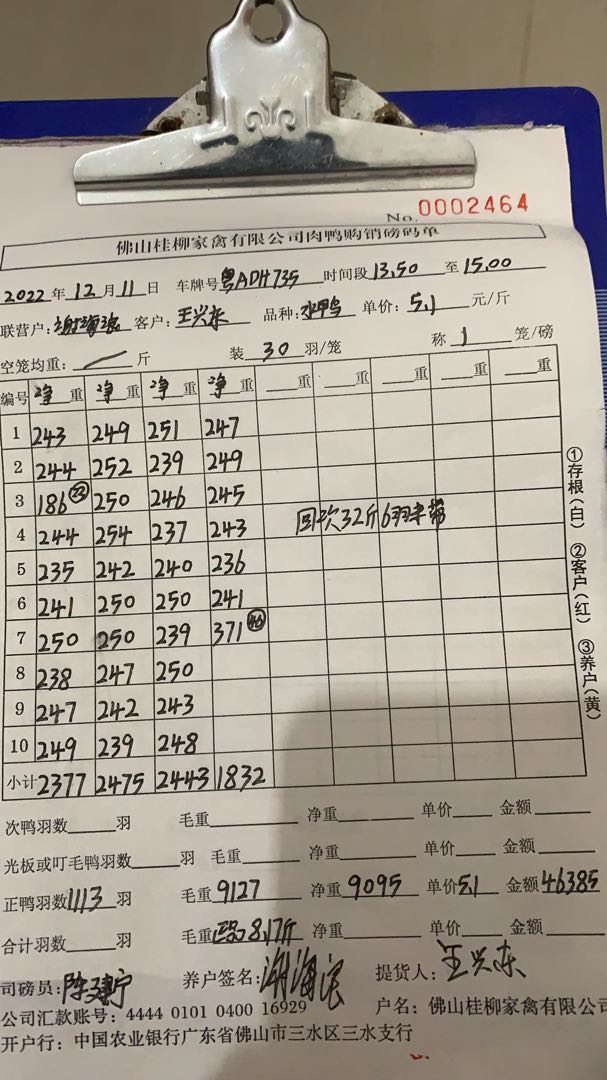 No. 0002464
佛山桂柳家禽有限公司肉鸭购销磅码单
2022年12月11日 车牌号粤ADH735 时间段13,50至15,00
联营户:谢海滨 客户:王兴东 品种:水鸭 单价:5,1元/斤
空笼均重:／斤 装30羽/笼 称1笼/磅
编号 净重 净重 净重 净重 重 重 重 重
1 243 249 251 247
2 244 252 239 249
3 186㉒ 250 246 245
4 244 254 237 243 回次32斤6羽未带
5 235 242 240 236
6 241 250 250 241
7 250 250 239 371㊵
8 238 247 250
9 247 242 243
10 249 239 248
小计 2377 2475 2443 1832
①存根(白) ②客户(红) ③养户(黄)
次鸭羽数 羽 毛重 净重 单价 金额
光板或叮毛鸭羽数 羽 毛重 净重 单价 金额
正鸭羽数1113羽 毛重9127 净重9095 单价5,1 金额46385
合计羽数 羽 毛重 8,17斤 净重 单价 金额
司磅员: 养户签名:谢海滨 提货人:王兴东
公司汇款账号:4444 0101 0400 16929 户名:佛山桂柳家禽有限公
开户行:中国农业银行广东省佛山市三水区三水支行